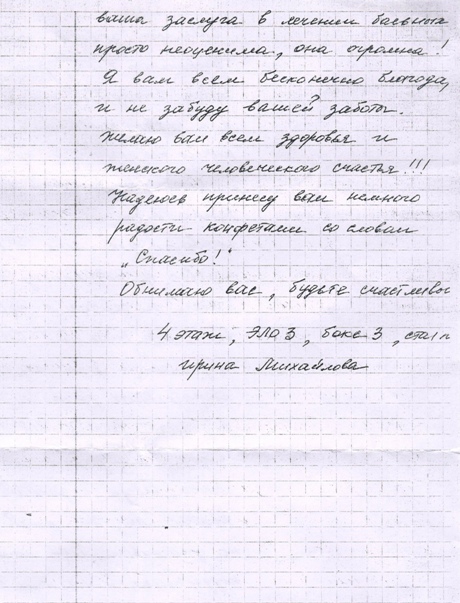 ваша заслуга в лечении больных
просто неоценима, она огромна!
Я вам всем бесконечно благода,
и не забуду вашей заботы.
желаю вам всем здоровья и
женского человеческого счастья!!!
Надеюсь принесу вам немного
радости конфетами со словом
„Спасибо!"
Обнимаю вас, будьте счастливы
4 этаж, 3, бокс 3,
ирина Михайлова